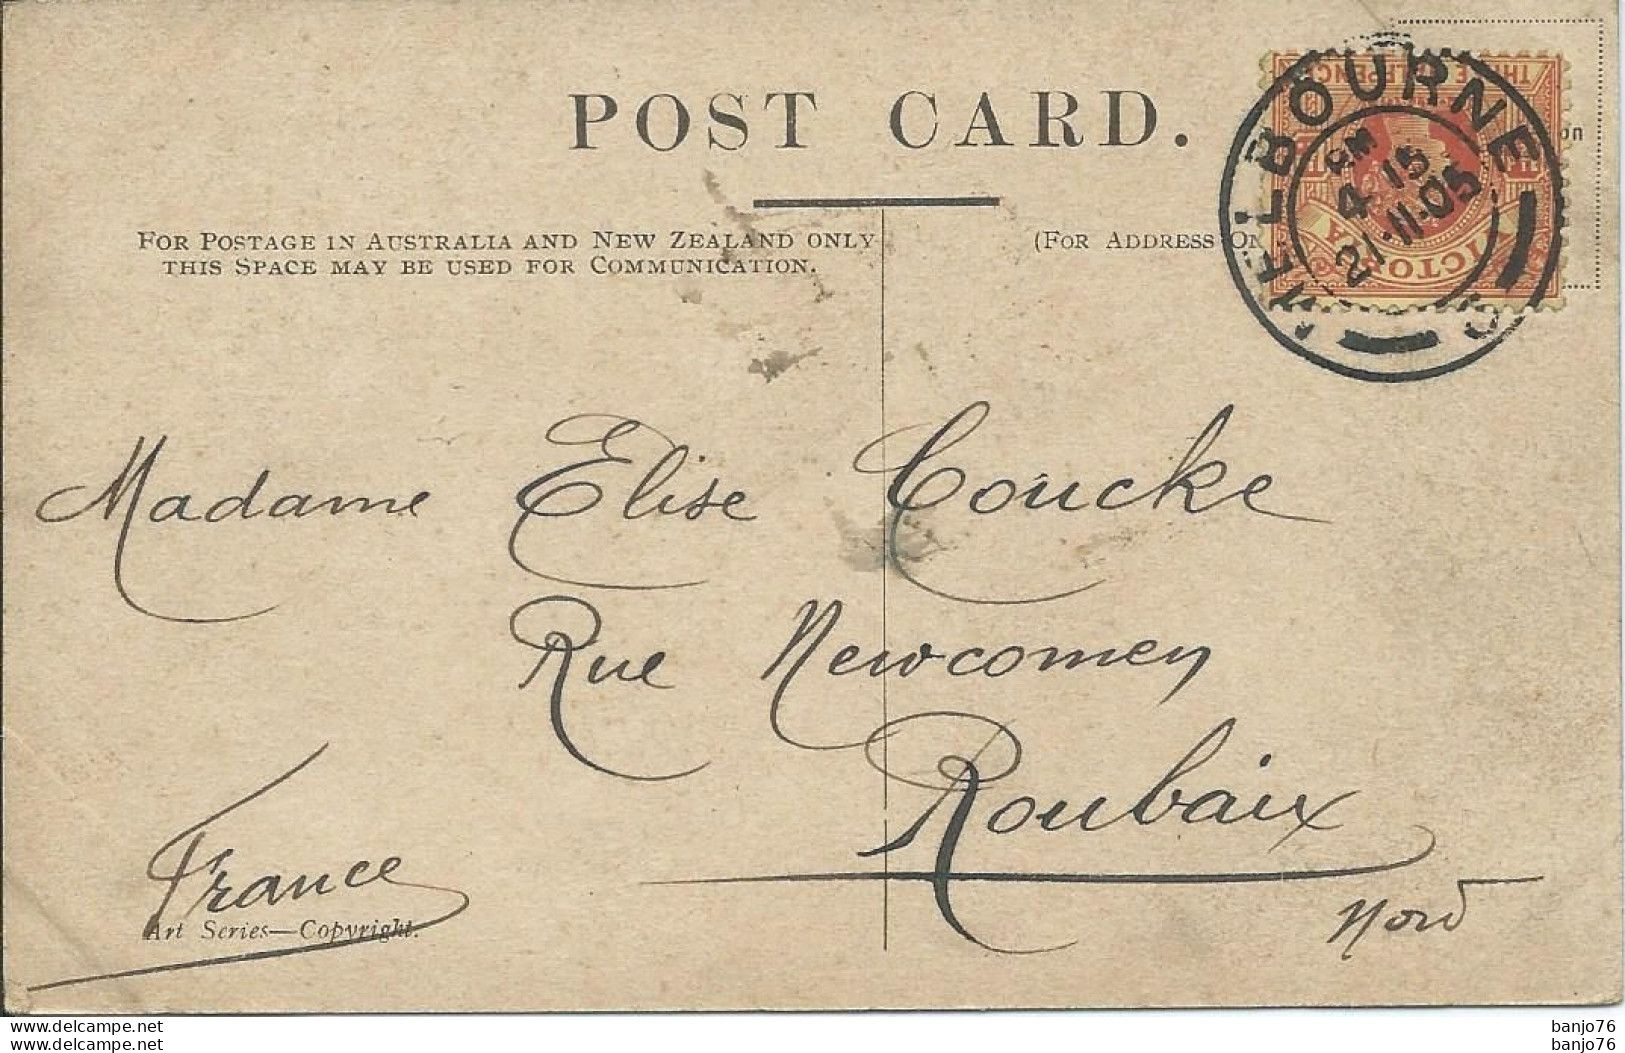 POST CARD.
FOR POSTAGE IN AUSTRALIA AND NEW ZEALAND ONLY
THIS SPACE MAY BE USED FOR COMMUNICATION.
(FOR ADDRESS ON
THREE HALFPENCE
VICTORIA
MELBOURNE
PM
4 15
21·11·05
on
Madame Elise Coucke
Rue Newcomen
Roubaix
Nord
France
Art Series—Copyright.
www.delcampe.net
www.delcampe.com
banjo76
banjo76